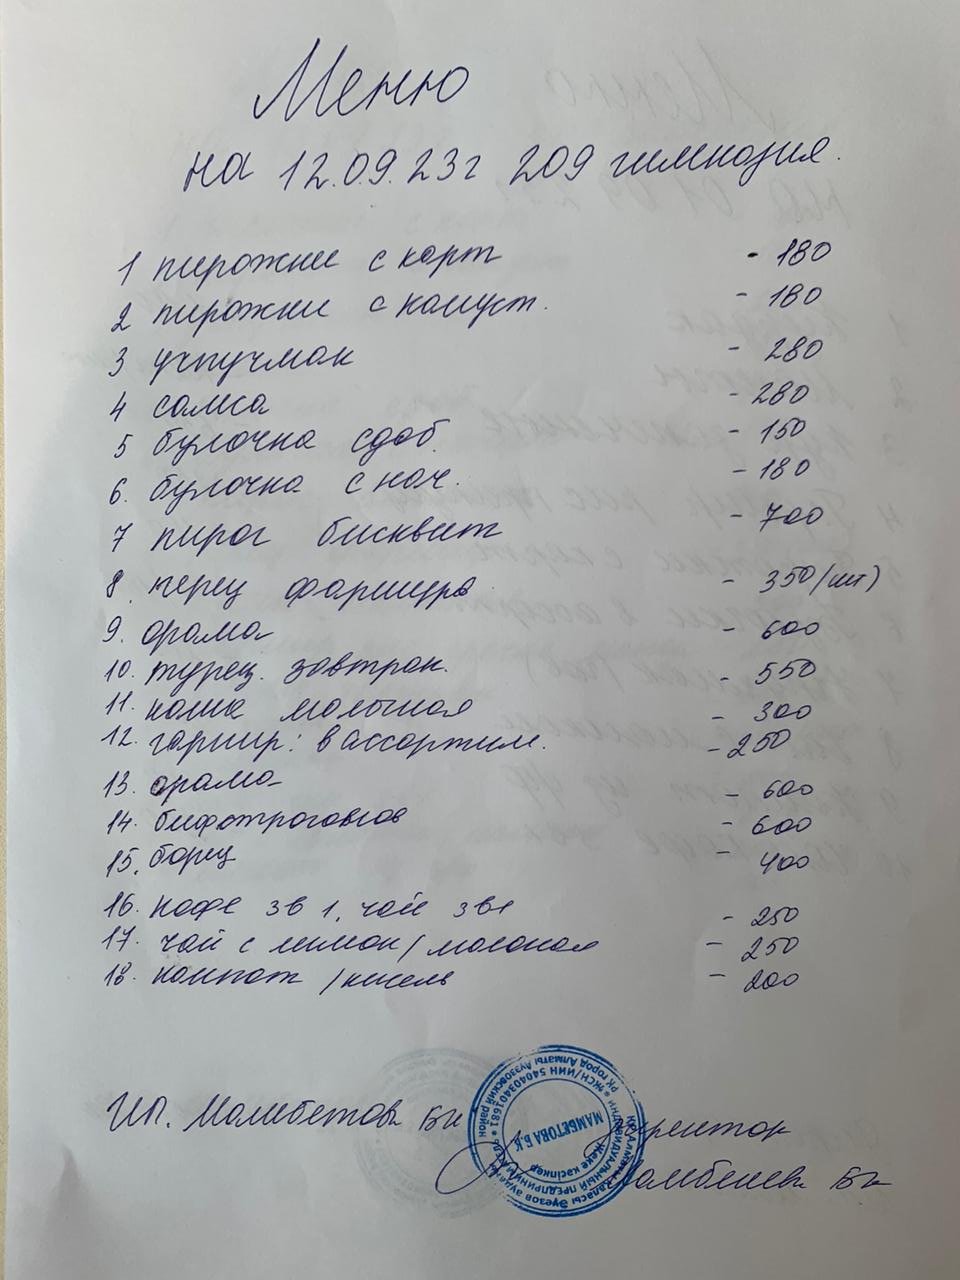 Меню
на 12.09.23г 209 гимназия.
1 пирожки с карт - 180
2 пирожки с капуст. - 180
3 учпучмак - 280
4 самса - 280
5 булочка сдоб. - 150
6. булочка с нач. - 180
7 пирог бисквит - 700
8. перец фарширв - 350/шт)
9. орама - 600
10. турец. завтрак. - 550
11. каша молочная - 300
12. гарнир: в ассортим. - 250
13. орама - 600
14. бифстроганов - 600
15. борщ - 400
16. кофе 3в1, чай 3в1 - 250
17. чай с лимон/молоком - 250
18. компот /кисель - 200
ИП. Мамбетова БК
Директор
Мамбетова БК
РК город Алматы Ауэзовский район
ЖСН/ИИН 540403401681
ИНДИВИДУАЛЬНЫЙ ПРЕДПРИНИМАТЕЛЬ
ҚР Алматы қаласы Әуезов ауданы
Жеке кәсіпкер
МАМБЕТОВА Б.К.